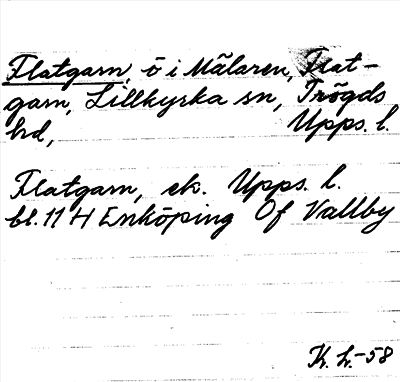 Flatgarn, ö i Mälaren, Flat-
garn, Lillkyrka sn, Trögds
hd, Upps. l.
Flatgarn, ek. Upps. l.
bl. 11 H Enköping Öf Vallby
K. L. -58